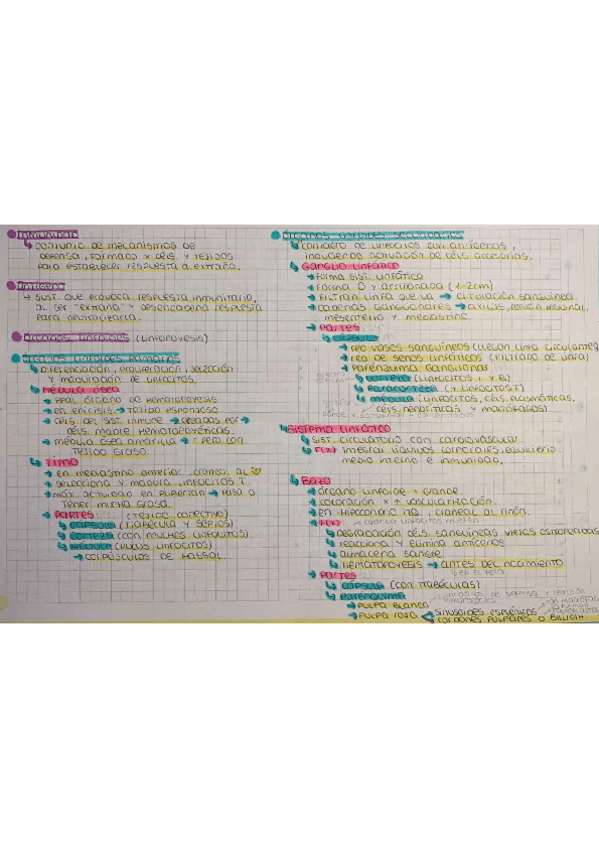 INMUNIDAD
↳ CONJUNTO DE MECANISMOS DE
DEFENSA, FORMADO X CÉLS. Y TEJIDOS
PARA ESTABLECER RESPUESTA A EXTRAÑO.
ANTÍGENO
→ SUST. QUE PROVOCA RESPUESTA INMUNITARIA,
AL SER "EXTRAÑA" DESENCADENA RESPUESTA
PARA NEUTRALIZARLA.
ÓRGANOS LINFOIDES (LINFOPOYESIS)
ÓRGANOS LINFOIDES PRIMARIOS
↳ DIFERENCIACIÓN, PROLIFERACIÓN, SELECCIÓN
Y MADURACIÓN DE LINFOCITOS.
↳ MÉDULA ÓSEA
→ PPAL. ÓRGANO DE HEMATOPOYESIS
→ EN EPÍFISIS → TEJIDO ESPONJOSO
→ CÉLS. DEL SIST. INMUNE → CREADAS POR →
CÉLS. MADRE HEMATOPOYÉTICAS.
→ MÉDULA ÓSEA AMARILLA → PERO CON
TEJIDO GRASO.
↳ TIMO
→ EN MEDIASTINO ANTERIOR, CRANEAL AL
→ SELECCIONA Y MADURA LINFOCITOS T
→ MÁX. ACTIVIDAD EN PUBERTAD → PASA A
TENER MUCHA GRASA.
→ PARTES (TEJIDO CONECTIVO)
↳ CÁPSULA (TRABÉCULA Y SEPTOS)
↳ CORTEZA (CON MUCHOS LINFOCITOS)
↳ MÉDULA (POCOS LINFOCITOS)
→ CORPÚSCULOS DE HASSAL.
ÓRGANOS LINFOIDES SECUNDARIOS
↳ CONTACTO DE LINFOCITOS CON ANTÍGENOS,
INDUCIENDO ACTIVACIÓN DE CÉLS. ACCESORIAS.
↳ GANGLIO LINFÁTICO
→ FORMA SIST. LINFÁTICO
→ FORMA O Y ARRIÑONADA (1-2cm)
→ FILTRAN LINFA QUE VA → CIRCULACIÓN SANGUÍNEA.
→ CADENAS GANGLIONARES → AXILAS, REGIÓN INGUINAL,
MESENTERIO Y MEDIASTINO.
→ PARTES
↳ CÁPSULA
→ RED VASOS SANGUÍNEOS (LLEGAN LINFA CIRCULANTE)
→ RED DE SENOS LINFÁTICOS (FILTRADO DE LINFA)
→ PARÉNQUIMA GANGLIONAR
↳ CORTEZA (LINFOCITOS T Y B)
↳ PARACORTEZA (+ LINFOCITOS T)
↳ MÉDULA (LINFOCITOS, CÉLS. PLASMÁTICAS,
CÉLS. DENDRÍTICAS Y MACRÓFAGOS)
↳ SISTEMA LINFÁTICO
↳ SIST. CIRCULATORIO CON CARDIOVASCULAR
↳ FUNC. INTEGRAR LÍQUIDOS CORPORALES, EQUILIBRIO
MEDIO INTERNO E INMUNIDAD.
↳ BAZO
→ ÓRGANO LINFOIDE + GRANDE.
→ COLORACIÓN X + VASCULARIZACIÓN.
→ EN HIPOCONDRIO IZQ, CRANEAL AL RIÑÓN.
→ FUNC. CUANDO LINFOCITOS MUEREN
↳ DEGRADACIÓN CÉLS. SANGUÍNEAS VIEJAS
↳ REACCIONA Y ELIMINA ANTÍGENOS
↳ ALMACENA SANGRE
↳ HEMATOPOYESIS → ANTES DEL NACIMIENTO
→ PARTES
↳ CÁPSULA (CON TRABÉCULAS)
↳ PARÉNQUIMA
→ PULPA BLANCA
→ PULPA ROJA SINUSOIDES ESPLÉNICOS
CORDONES PULPARES O BILLROTH